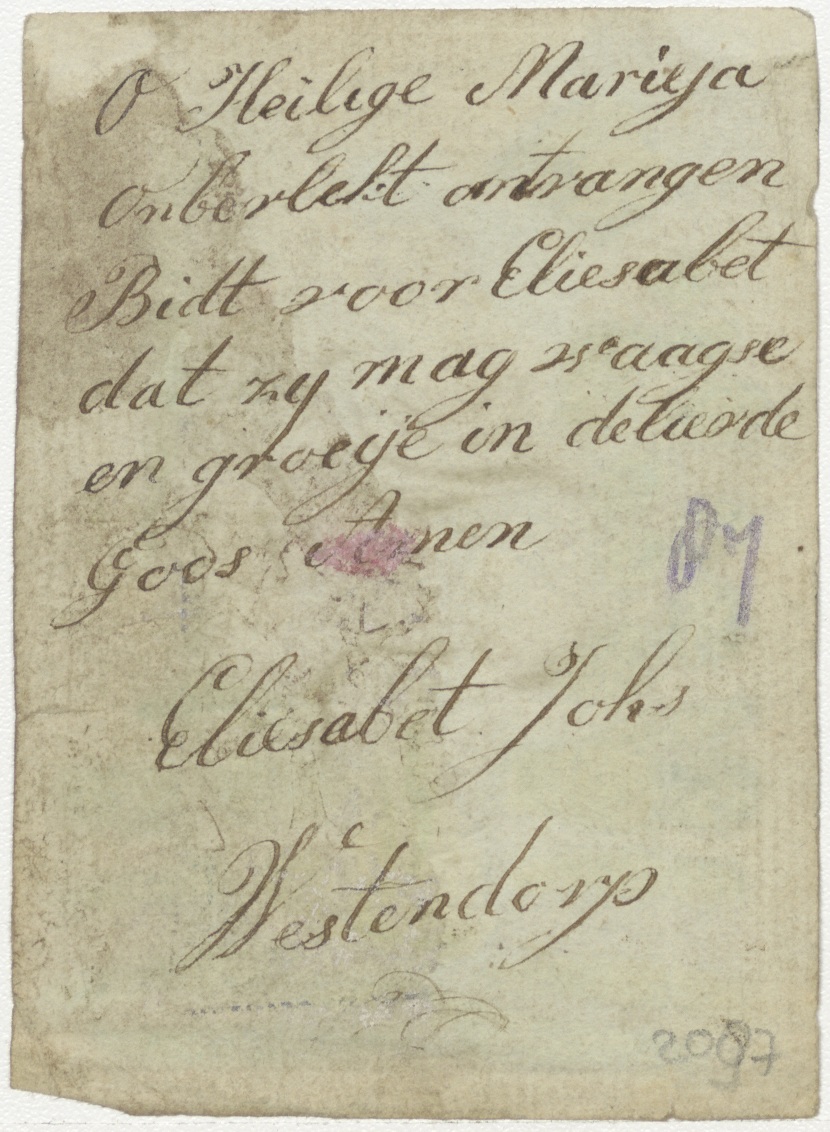 O Heilige Mariya
Onberlekt ontvangen
Bidt voor Eliesabet
dat zy mag waagse
en groeije in delierde
Gods Amen
Eliesabet Johs
Westendorp